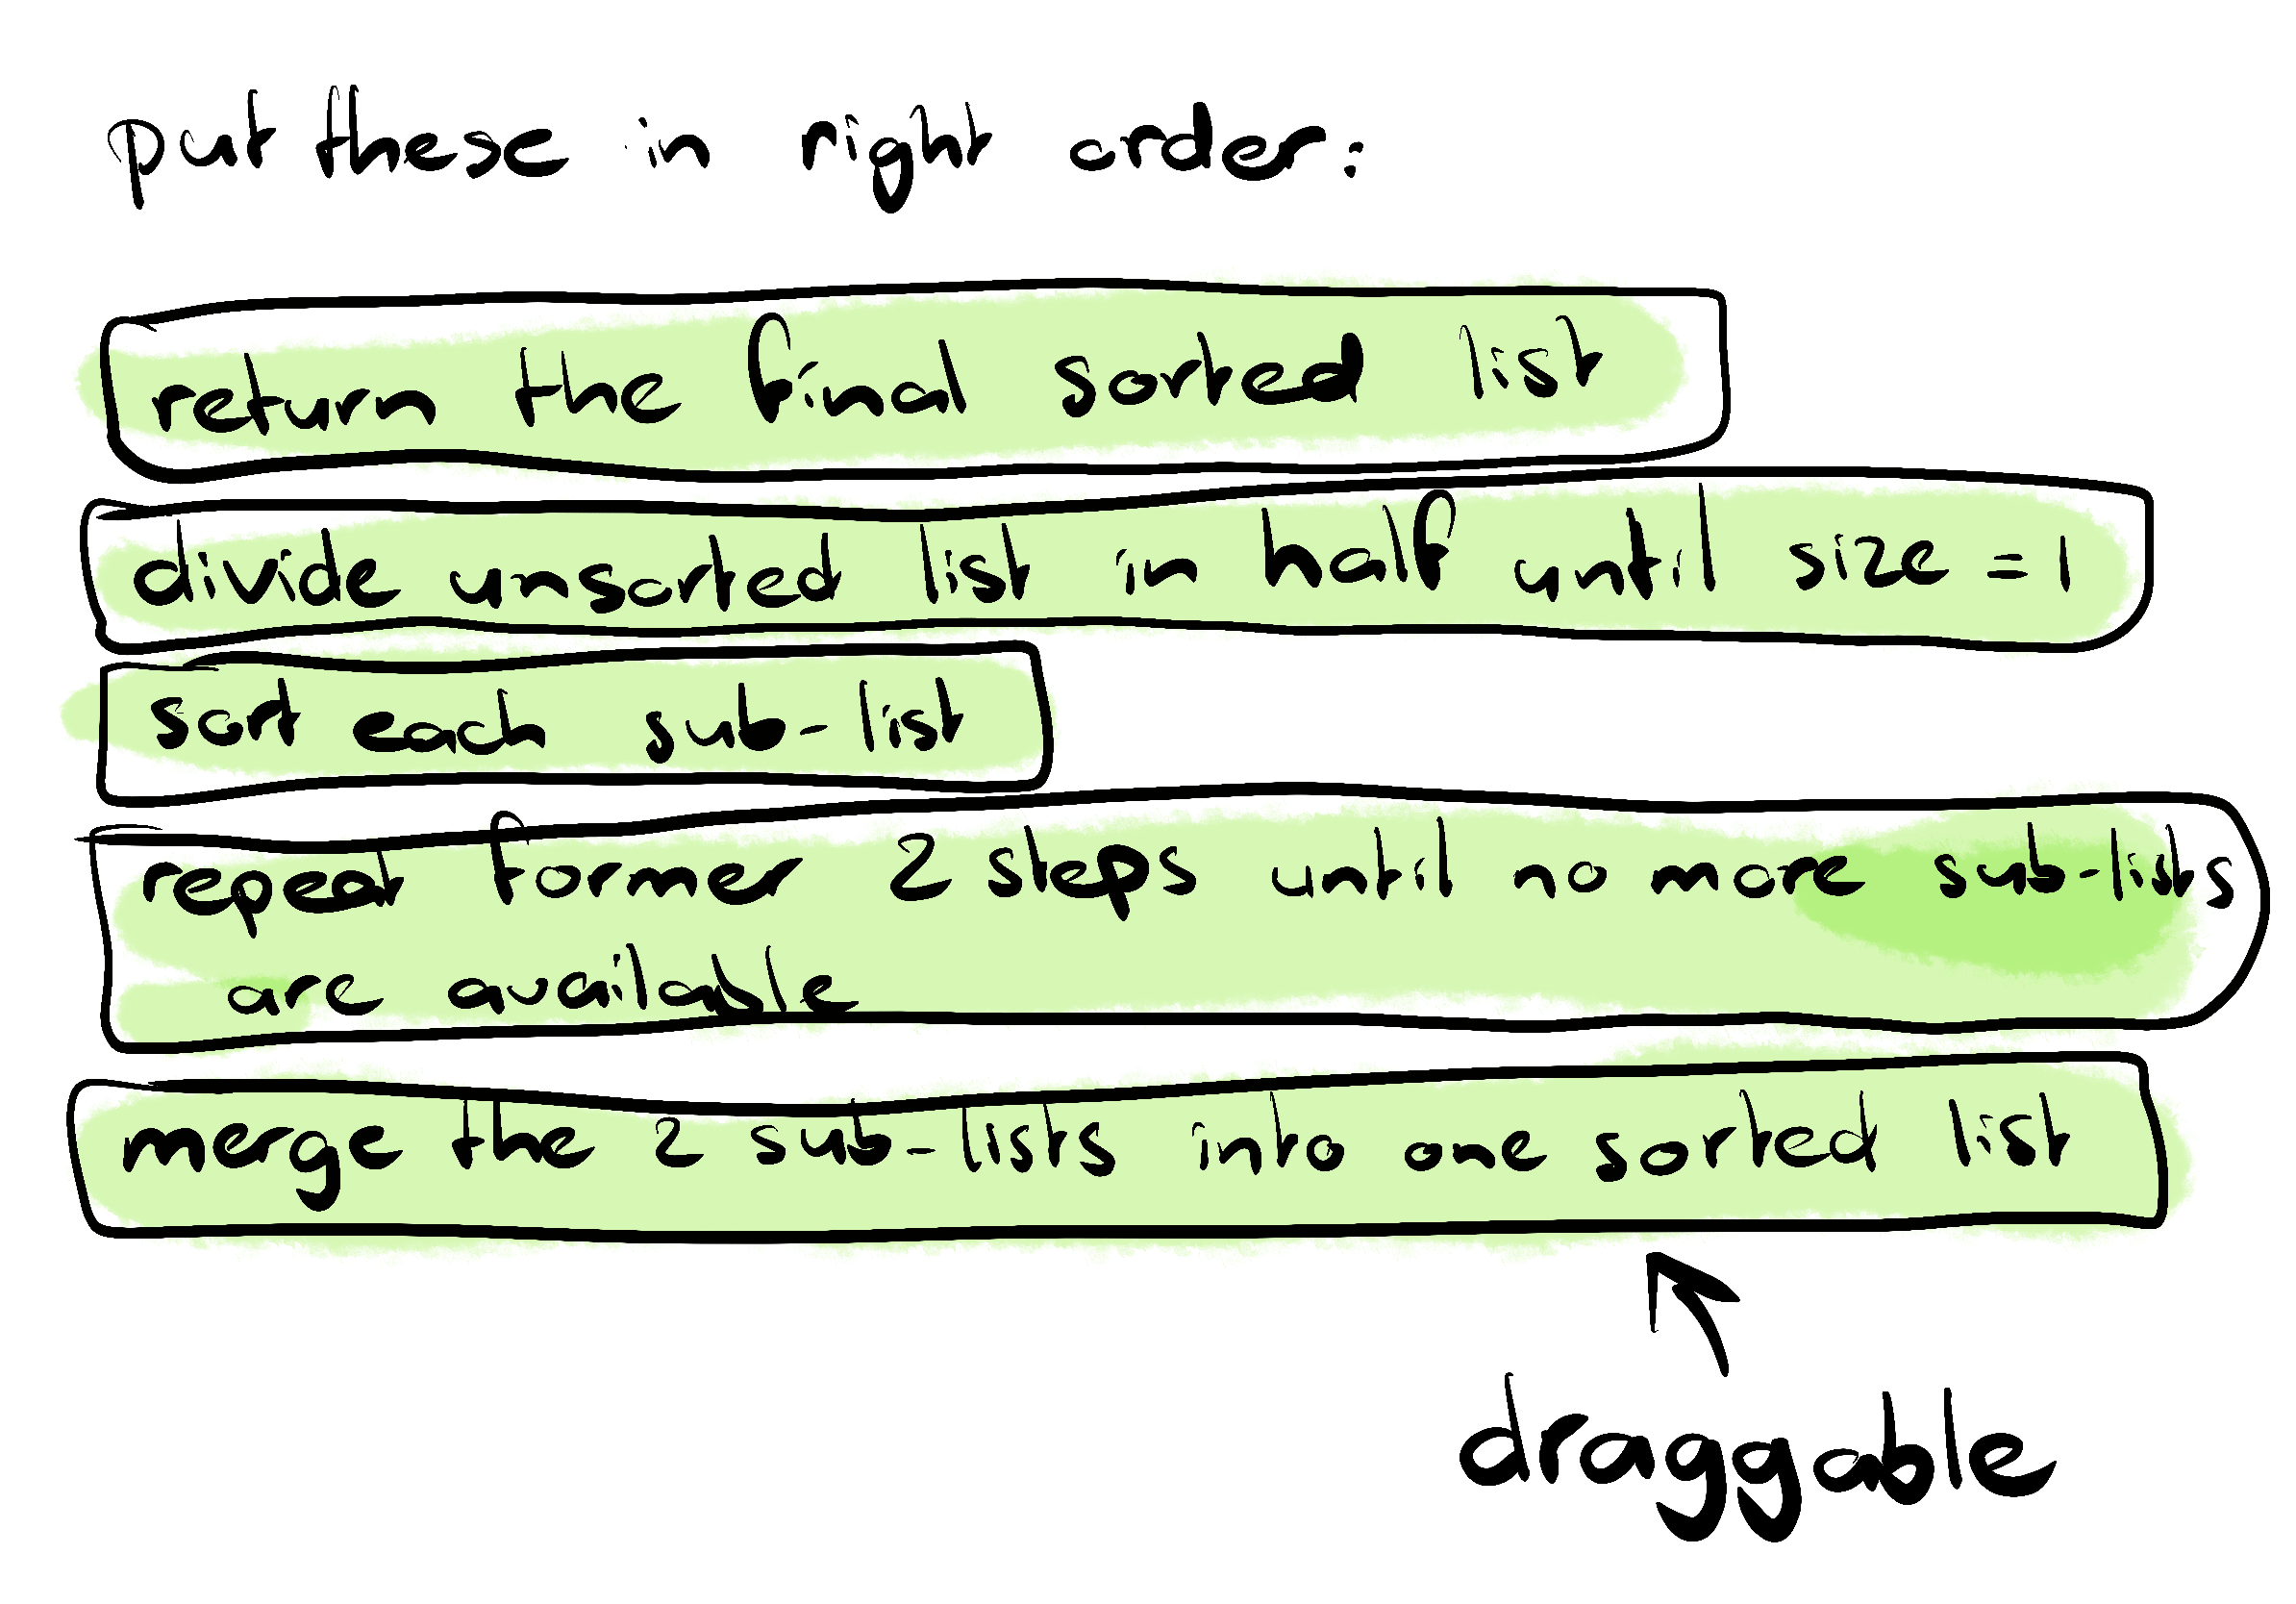 put these in right order:
return the final sorted list
divide unsorted list in half until size = 1
sort each sub-list
repeat former 2 steps until no more sub-lists
are available
merge the 2 sub-lists into one sorted list
draggable